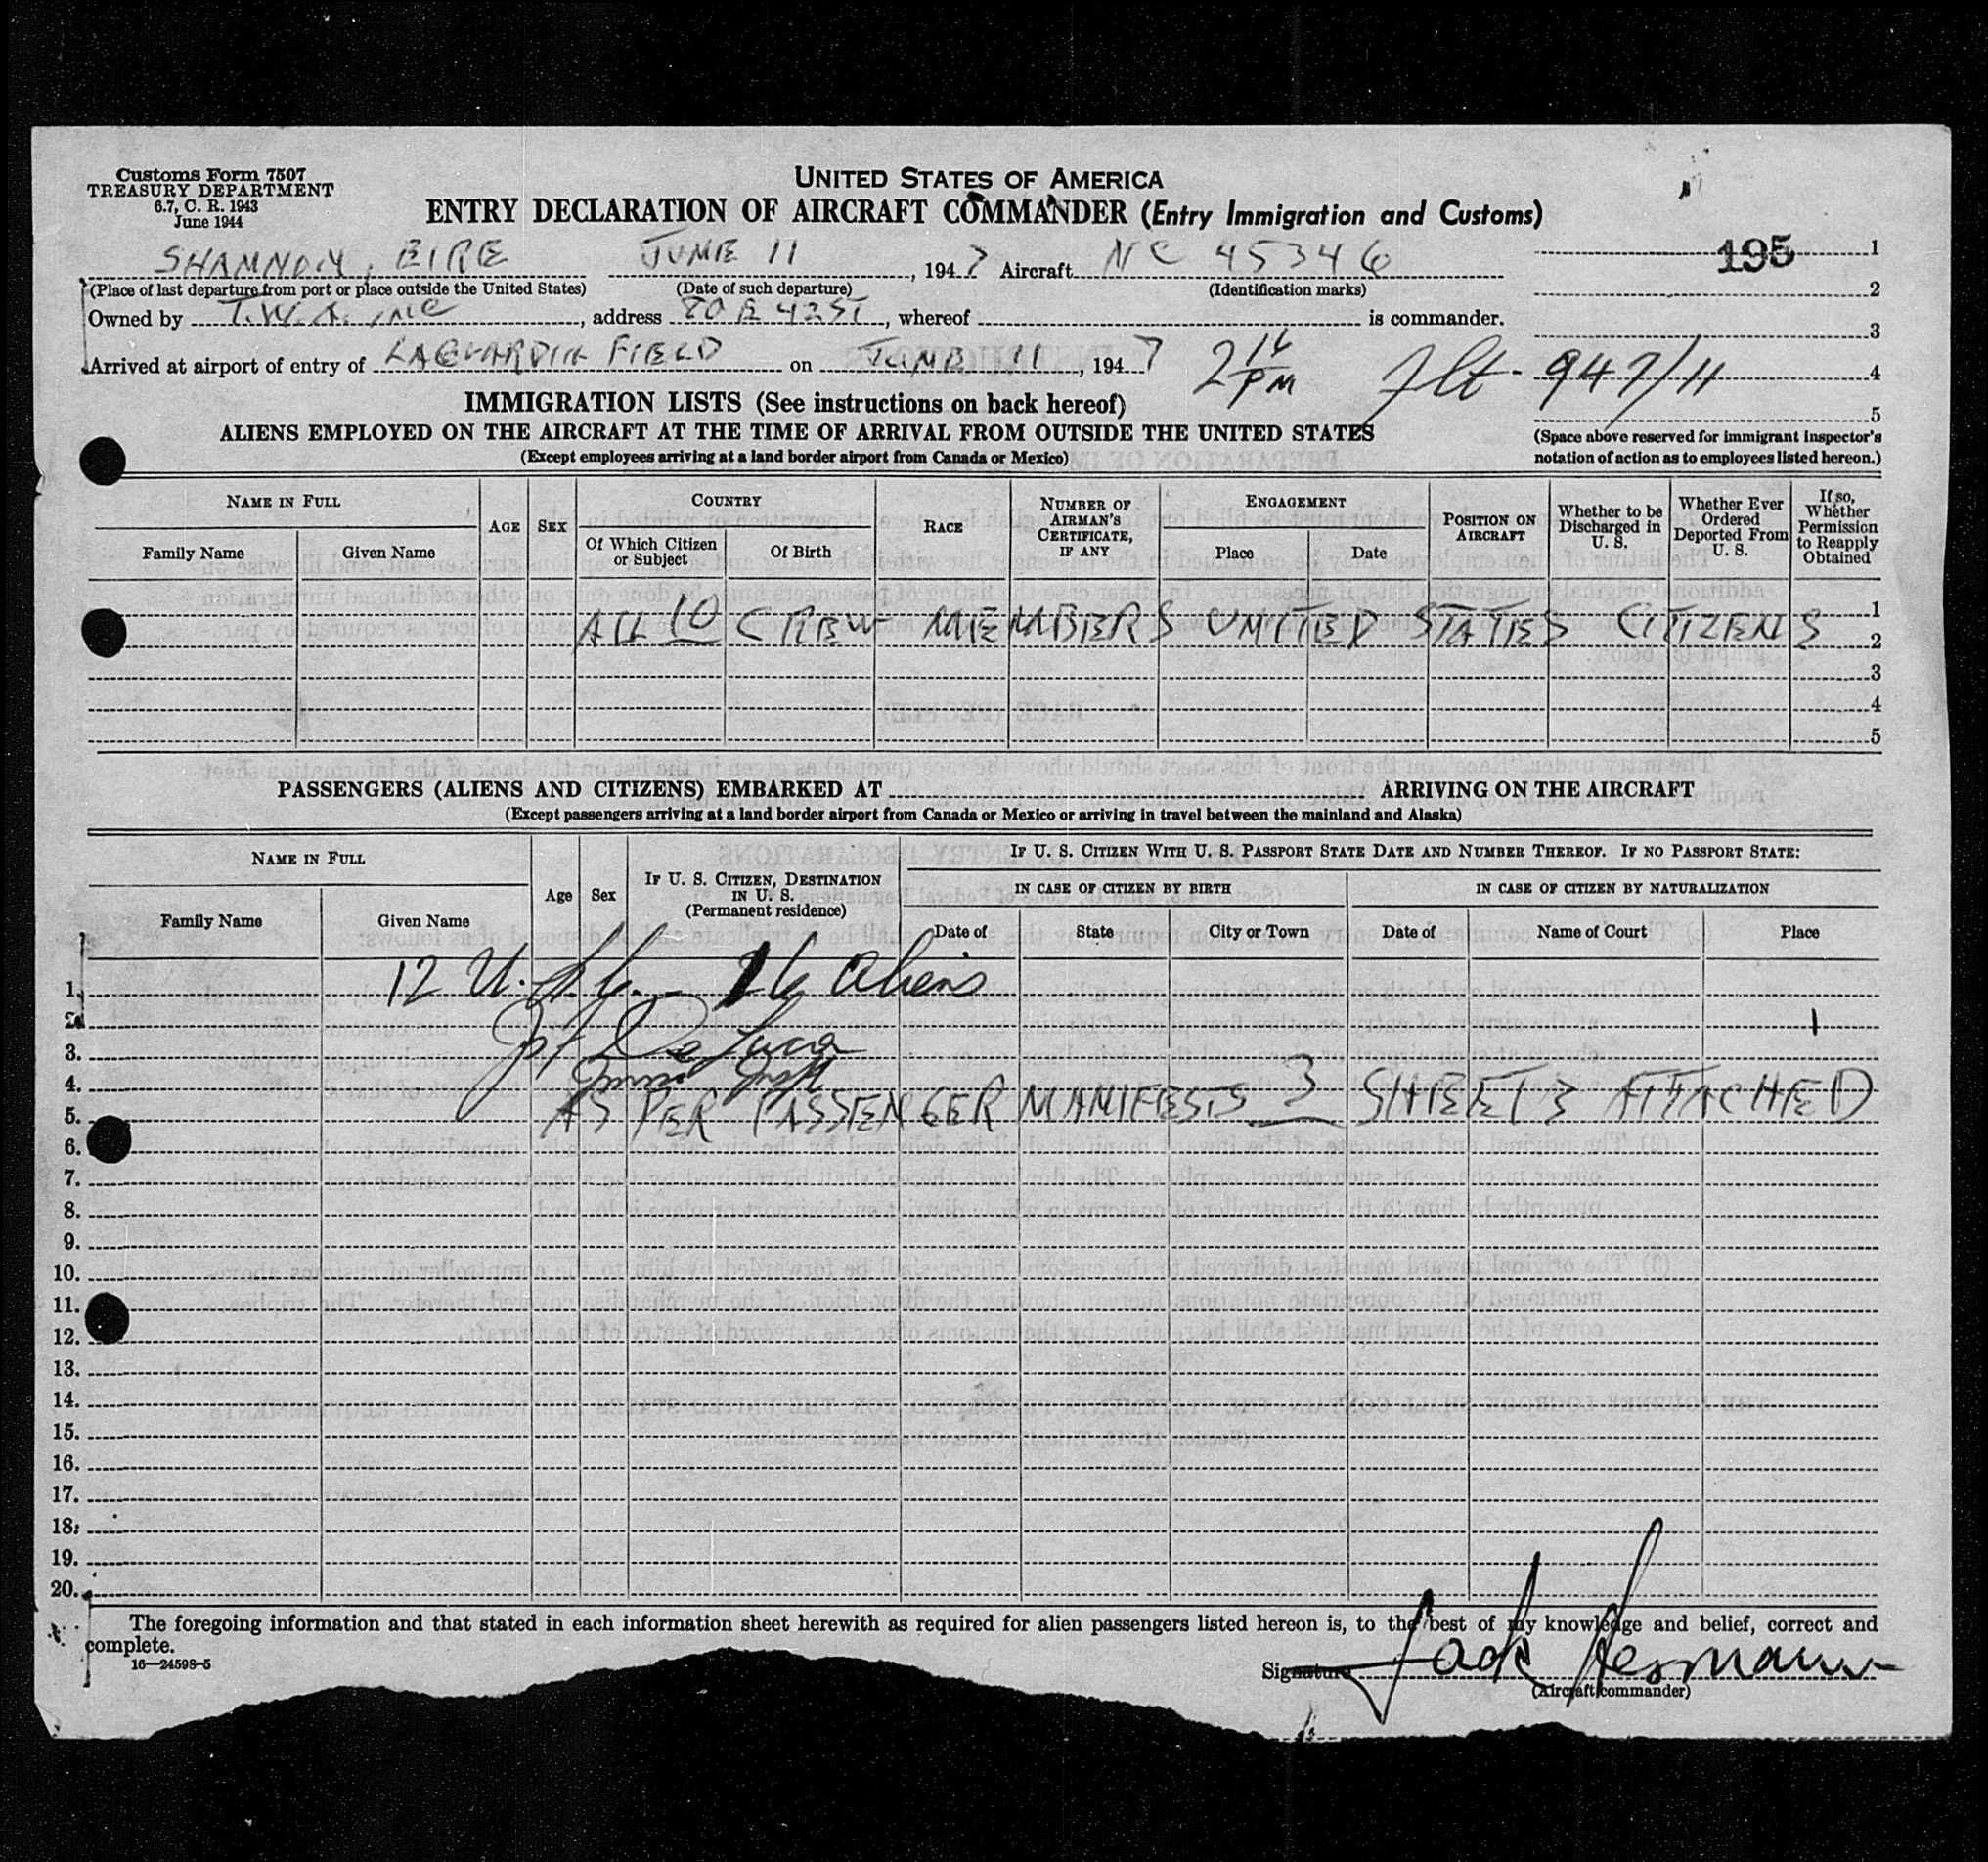 Customs Form 7507
TREASURY DEPARTMENT
6.7, C. R. 1943
June 1944
UNITED STATES OF AMERICA
ENTRY DECLARATION OF AIRCRAFT COMMANDER (Entry Immigration and Customs)
SHANNON, EIRE JUNE 11, 1947 Aircraft NC 45346
(Place of last departure from port or place outside the United States) (Date of such departure) (Identification marks)
195 1
2
3
4
5
Owned by T.W.A. INC, address 80 E 42 ST, whereof is commander.
Arrived at airport of entry of LAGUARDIA FIELD on JUNE 11, 1947 2 16 PM Flt. 947/11
IMMIGRATION LISTS (See instructions on back hereof)
ALIENS EMPLOYED ON THE AIRCRAFT AT THE TIME OF ARRIVAL FROM OUTSIDE THE UNITED STATES
(Except employees arriving at a land border airport from Canada or Mexico)
(Space above reserved for immigrant inspector's
notation of action as to employees listed hereon.)
NAME IN FULL
Family Name Given Name
AGE SEX
COUNTRY
Of Which Citizen or Subject Of Birth
RACE
NUMBER OF AIRMAN'S CERTIFICATE, IF ANY
ENGAGEMENT
Place Date
POSITION ON AIRCRAFT
Whether to be Discharged in U. S.
Whether Ever Ordered Deported From U. S.
If so, Whether Permission to Reapply Obtained
1
ALL 10 CREW MEMBERS UNITED STATES CITIZENS
2
3
4
5
PASSENGERS (ALIENS AND CITIZENS) EMBARKED AT ARRIVING ON THE AIRCRAFT
(Except passengers arriving at a land border airport from Canada or Mexico or arriving in travel between the mainland and Alaska)
NAME IN FULL
Family Name Given Name
Age Sex
IF U. S. CITIZEN, DESTINATION IN U. S.
(Permanent residence)
IF U. S. CITIZEN WITH U. S. PASSPORT STATE DATE AND NUMBER THEREOF. IF NO PASSPORT STATE:
IN CASE OF CITIZEN BY BIRTH IN CASE OF CITIZEN BY NATURALIZATION
Date of State City or Town Date of Name of Court Place
1. 12 U.S.C. 16 Aliens
2.
3. De Luca
4.
5. AS PER PASSENGER MANIFESTS 3 SHEETS ATTACHED
6.
7.
8.
9.
10.
11.
12.
13.
14.
15.
16.
17.
18.
19.
20.
The foregoing information and that stated in each information sheet herewith as required for alien passengers listed hereon is, to the best of my knowledge and belief, correct and
complete.
16—24598-5
Signature Jack Hermann
(Aircraft commander)